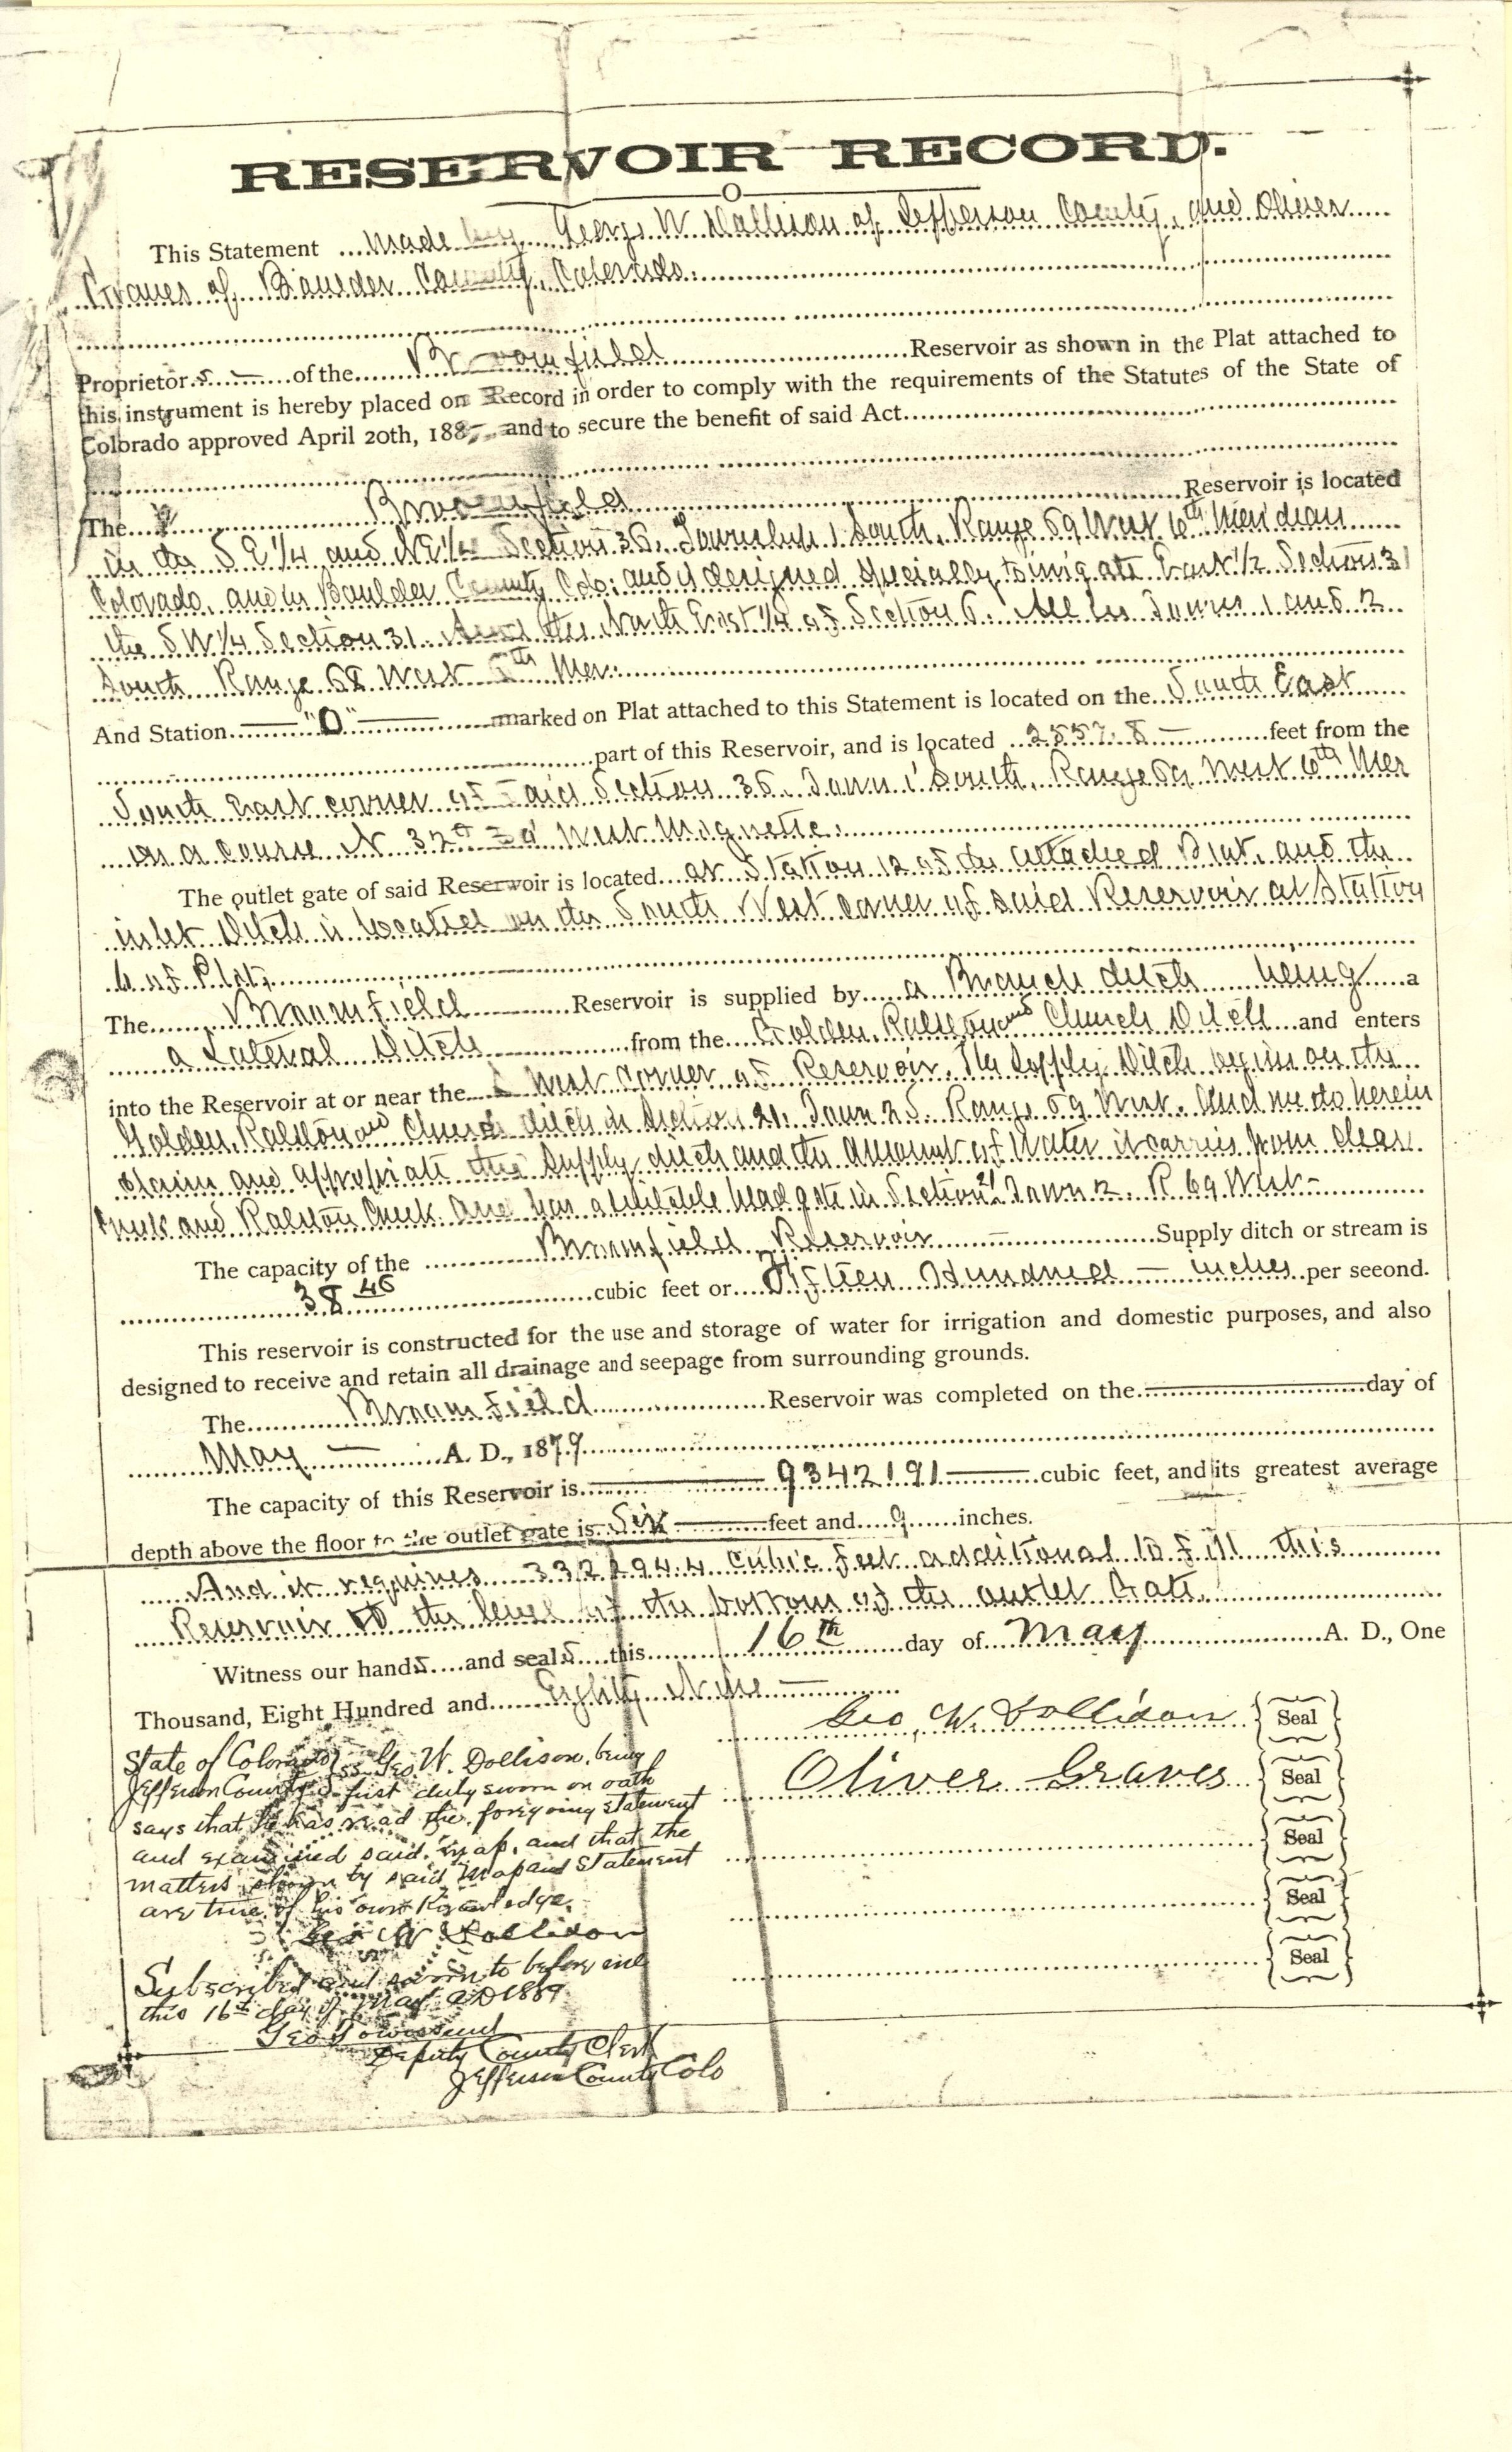 RESERVOIR RECORD.
This Statement made by George W Dollison of Jefferson County, and Oliver
Graves of Boulder County, Colorado.
Proprietors of the Broomfield Reservoir as shown in the Plat attached to
this instrument is hereby placed on Record in order to comply with the requirements of the Statutes of the State of
Colorado approved April 20th, 188 and to secure the benefit of said Act
The Broomfield Reservoir is located
in the S E 1/4 and N E 1/4 Section 36, Township 1 South, Range 69 West 6th Meridian
Colorado, and in Boulder County Colo: and is designed specially to irrigate East 1/2 Section 31
the S W 1/4 Section 31. And the North East 1/4 of Section 6. All in Towns 1 and 2
South Range 68 West 6th Mer.
And Station "O" marked on Plat attached to this Statement is located on the South East
part of this Reservoir, and is located 2557.8 feet from the
South East corner of said Section 36, Town 1 South, Range 69 West 6th Mer
on a course N 32° 30' West Magnetic.
The outlet gate of said Reservoir is located at Station 12 of the attached Plat, and the
inlet Ditch is located on the South West corner of said Reservoir at Station
6 of Plat,
The Broomfield Reservoir is supplied by a Branch ditch being a
a Lateral Ditch from the Golden, Ralston and Church Ditch and enters
into the Reservoir at or near the S West corner of Reservoir. The Supply Ditch begins on the
Golden, Ralston and Church ditch in Section 21, Town 2 S. Range 69 West. And we do herein
claim and appropriate this Supply ditch and the amount of Water it carries from Clear
Creek and Ralston Creek. and has a suitable head gate in Section 21 Town 2. R 69 West
The capacity of the Broomfield Reservoir Supply ditch or stream is
38 46 cubic feet or Fifteen Hundred inches per seeond.
This reservoir is constructed for the use and storage of water for irrigation and domestic purposes, and also
designed to receive and retain all drainage and seepage from surrounding grounds.
The Broomfield Reservoir was completed on the day of
May A. D., 1879
The capacity of this Reservoir is 9342191 cubic feet, and its greatest average
depth above the floor to the outlet gate is Six feet and 9 inches.
And it requires 3321294.4 Cubic feet additional to fill this
Reservoir to the level of the bottom of the outlet Gate.
Witness our hands and seals this 16th day of May A. D., One
Thousand, Eight Hundred and Eighty Nine
Geo, W. Dollison Seal
Oliver Graves Seal
Seal
Seal
Seal
State of Colorado
Jefferson County ss Geo. W. Dollison, being
first duly sworn on oath
says that he has read the foregoing statement
and examined said map, and that the
matters shown by said Map and Statement
are true of his own Knowledge.
Geo W Dollison
Subscribed and sworn to before me
this 16th day of May AD 1889
Geo Townsend
Deputy County Clerk
Jefferson County Colo